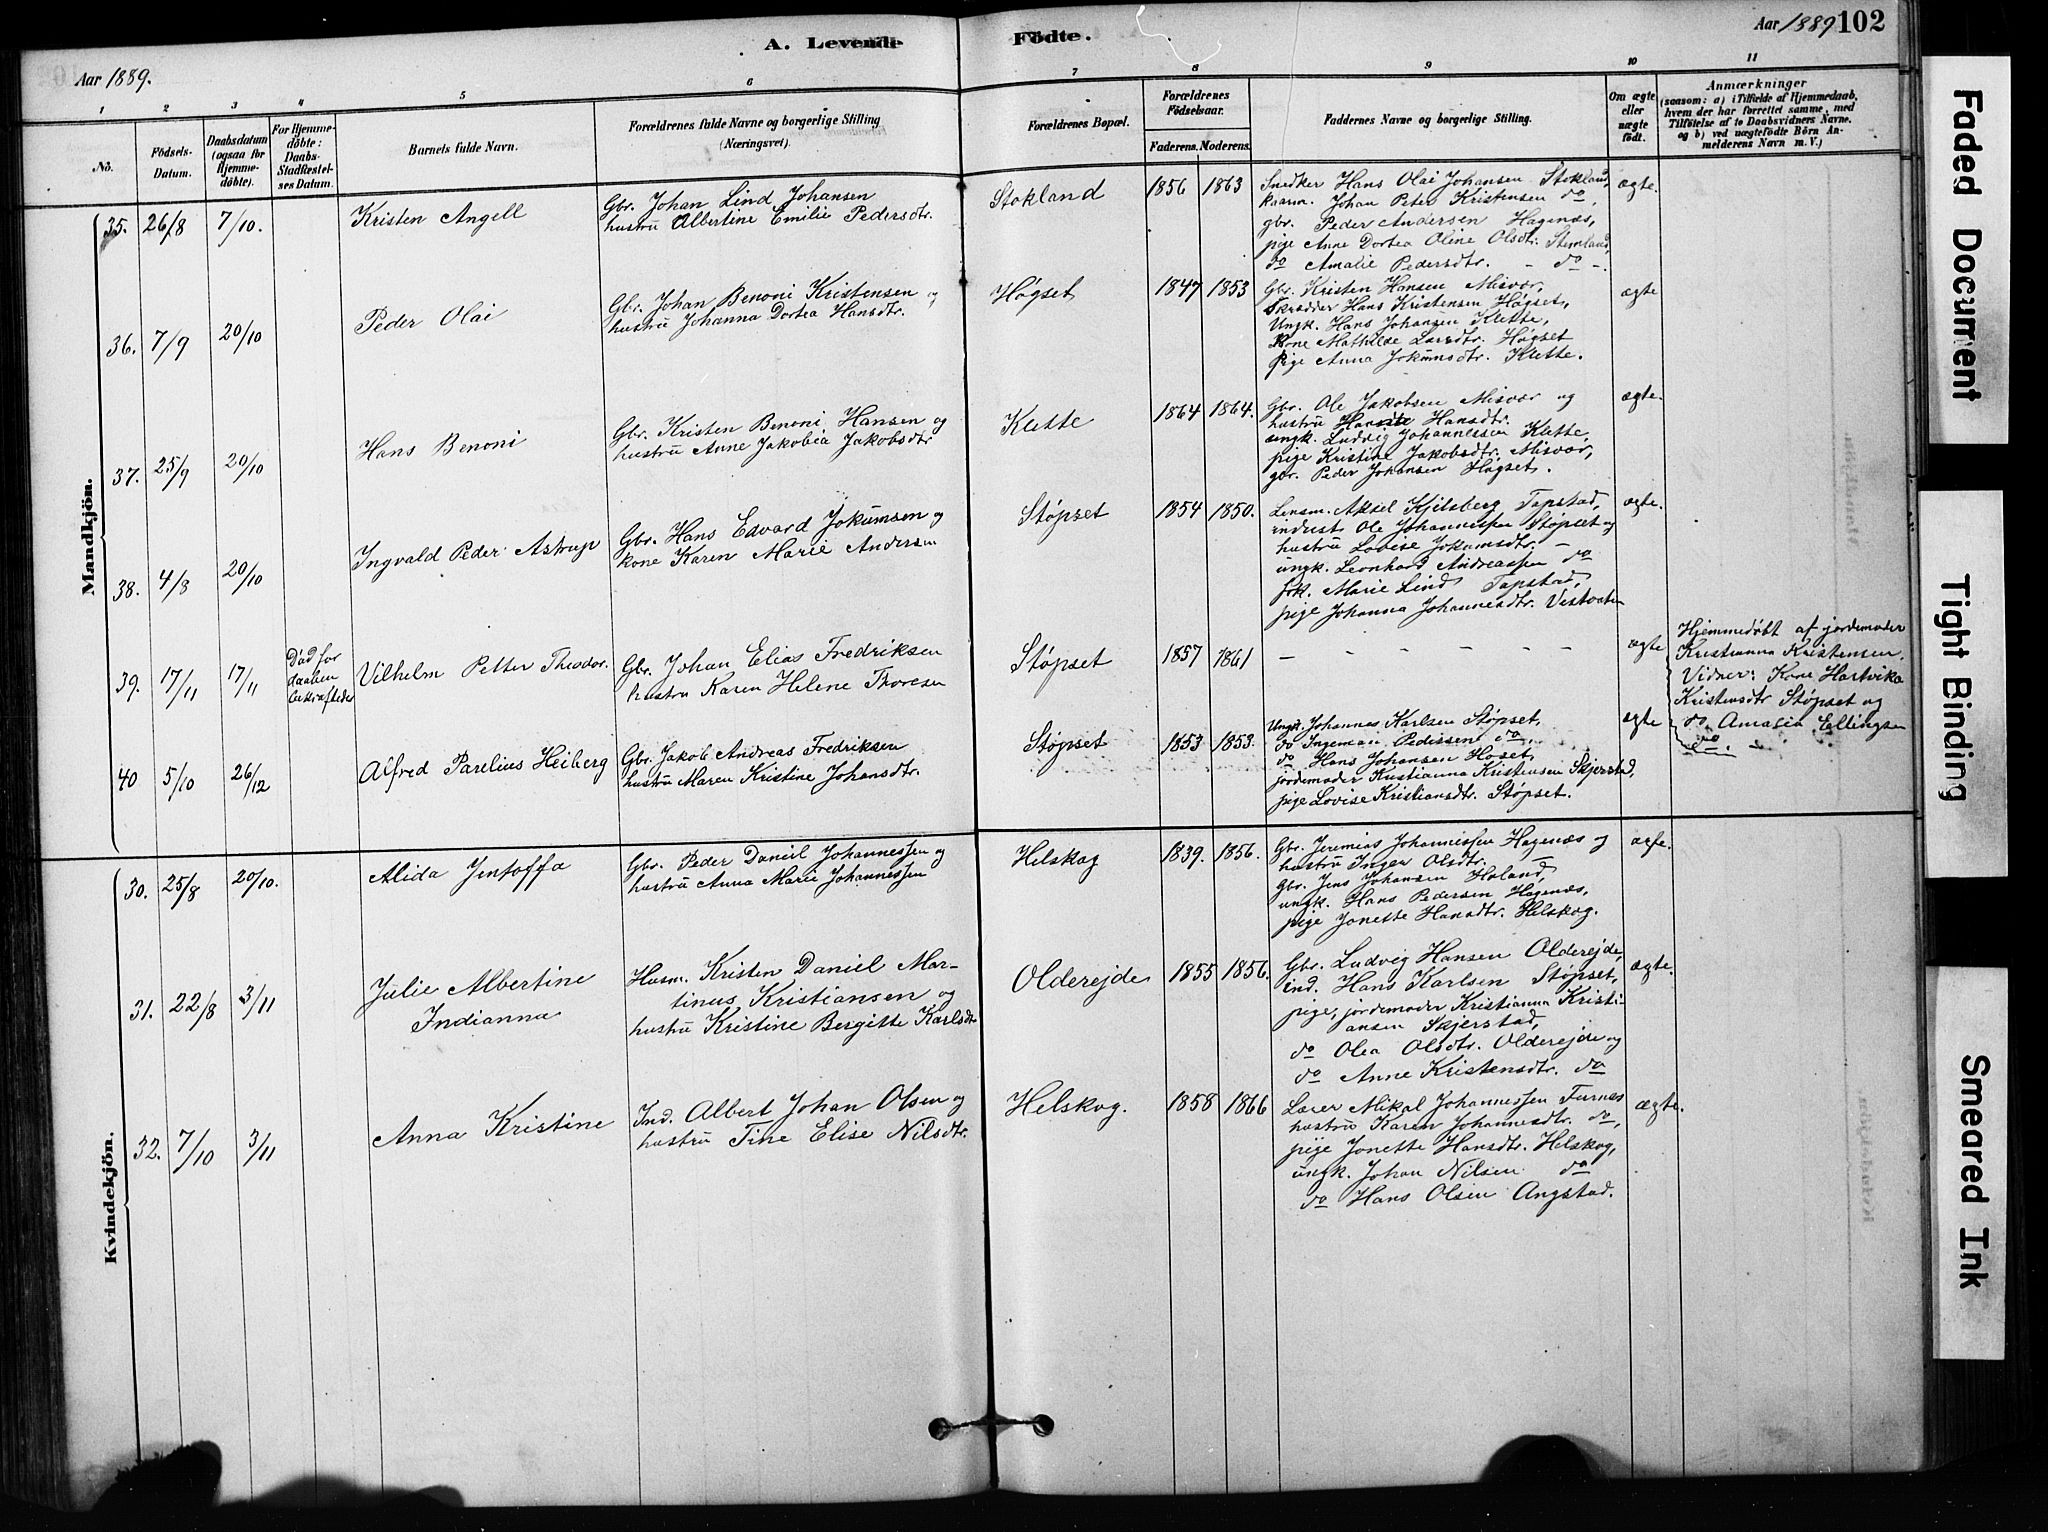 A. Levende Födte.
Aar 1889.
Aar 1889 102
1 2 3 4 5 6 7 8 9 10 11
No.
Födsels-Datum.
Daabsdatum (ogsaa for Hjemme-döbte).
For Hjemme-döbte: Daabs-Stadfæstel-ses Datum.
Barnets fulde Navn.
Forældrenes fulde Navne og borgerlige Stilling (Næringsvei).
Forældrenes Bopæl.
Forældrenes Födselsaar.
Faderens. Moderens.
Faddernes Navne og borgerlige Stilling.
Om ægte eller uægte födt.
Anmærkninger
(saasom: a) i Tilfælde af Hjemmedaab,
hvem der har forrettet samme, med
Tilföielse af to Daabsvidners Navne,
og b) ved uægtefödte Börn An-
melderens Navn m. V.)
Mandkjön.
35. 26/8 7/10. Kristen Angell
Gbr. Johan Lind Johansen
hustru Albertine Emilie Pedersdtr.
Stokland 1856 1863
Snedker Hans Olai Johansen Stokland,
kaarm. Johan Peter Kristensen do,
gbr. Peder Andersen Hagenæs,
pige Anne Dortea Oline Olsdtr.
do Amalie Pedersdtr. - do -.
ægte.
36. 7/9 20/10 Peder Olai
Gbr. Johan Benoni Kristensen og
hustru Johanna Dortea Hansdtr.
Høgset 1847 1853
Gbr. Kristen Hansen Misvær,
Skrædder Hans Kristensen Høgset,
Ungk. Hans Johansen Klette,
Kone Mathilde Larsdtr. Høgset
Pige Anna Jokumsdtr. Klette.
ægte
37. 25/9 20/10 Hans Benoni
Gbr. Kristen Benoni Hansen og
hustru Anne Jakobia Jakobsdtr
Klette 1864 1864.
Gbr. Ole Jakobsen Misvær og
hustru Hansdtr.
ungk. Ludvig Johannessen Klette,
pige Kristine Jakobsdtr. Misvær,
gbr. Peder Johansen Høgset.
ægte.
38. 4/8 20/10 Ingvald Peder Astrup
Gbr. Hans Edvard Jokumsen og
kone Karen Marie Andersen
Støpset 1854 1850.
Lensm. Aksel Kjelsberg Tapstad,
inderst Ole Johannessen Støpset og
hustru Lovise Jokumsdtr. -
ungk. Leonhard Andreassen do
frk. Marie Lind Tapstad,
pige Johanna Johannesdtr. Vestvaten
ægte.
39. 17/11 17/11 Død før daaben bekræftedes
Vilhelm Petter Theodor.
Gbr. Johan Elias Fredriksen
hustru Karen Helene Thoresen
Støpset 1857 1861 - - - - - -
ægte
Hjemmedøbt af jordemoder
Kristianna Kristensen.
Vidner: Kone Hartvika
Kristensdtr Støpset og
do Amalia Ellingsen
do. -
40 5/10 26/12 Alfred Parelius Heiberg
Gbr. Jakob Andreas Fredriksen
hustru Maren Kristine Johansdtr.
Støpset 1853 1853.
Ungk. Johannes Karlsen Støpset,
do Ingemari Pedersen do.
do Hans Johansen Hoset,
jordemoder Kristianna Kristensen Skjerstad,
pige Lovise Kristiansdtr. Støpset.
ægte
Kvindekjön.
30. 25/8 20/10. Alida Jentoffa
Gbr. Peder Daniel Johannessen og
hustru Anna Marie Johannessen
Helskog 1839. 1856.
Gbr. Jeremias Johannessen Hagenæs og
hustru Inger Olsdtr. -
Gbr. Jens Johansen Høland,
ungk. Hans Pedersen Hagenæs,
pige Jonette Hansdtr. Helskog.
ægte.
31. 22/8 3/11 Julie Albertine
Indianna
Husm. Kristen Daniel Mar-
tinus Kristiansen og
hustru Kristine Bergitte Karlsdtr
Olderejde 1855 1856.
Gbr. Ludvig Hansen Olderejde,
ind. Hans Karlsen Støpset,
pige, jordemoder Kristianna Kristi-
ansen Skjerstad,
do Olea Olsdtr. Olderejde og
do Anne Kristensdtr. do
ægte.
32. 7/10 3/11 Anna Kristine
Ind. Albert Johan Olsen og
hustru Tine Elise Nilsdtr.
Helskog. 1858 1866
Lærer Mikal Johannessen Furnes
hustru Karen Johannesdtr. do,
pige Jonette Hansdtr. Helskog,
ungk. Johan Nilsen do
do Hans Olsen Angstad.
ægte.
Faded Document
Tight Binding
Smeared Ink